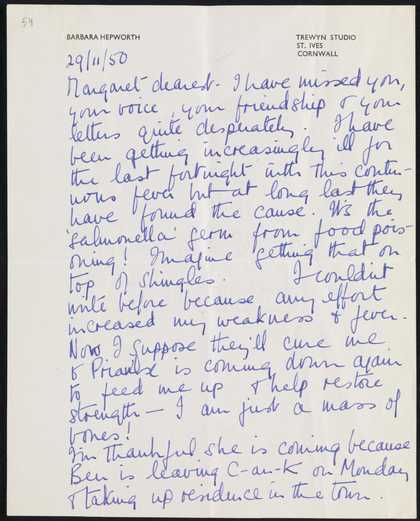 54
BARBARA HEPWORTH
TREWYN STUDIO
ST. IVES
CORNWALL
29/11/50
Margaret dearest. I have missed you,
your voice, your friendship & your
letters quite desperately. I have
been getting increasingly ill for
the last fortnight with this contin-
uous fever but at long last they
have found the cause. It's the
'salmonella' germ from food pois-
oning! Imagine getting that on
top of shingles. I couldn't
write before because any effort
increased my weakness & fever.
Now I suppose they'll cure me
& is coming down again
to feed me up & help restore
strength — I am just a mass of
bones!
I'm thankful she is coming because
Ben is leaving C-an-K on Monday
& taking up residence in the town.